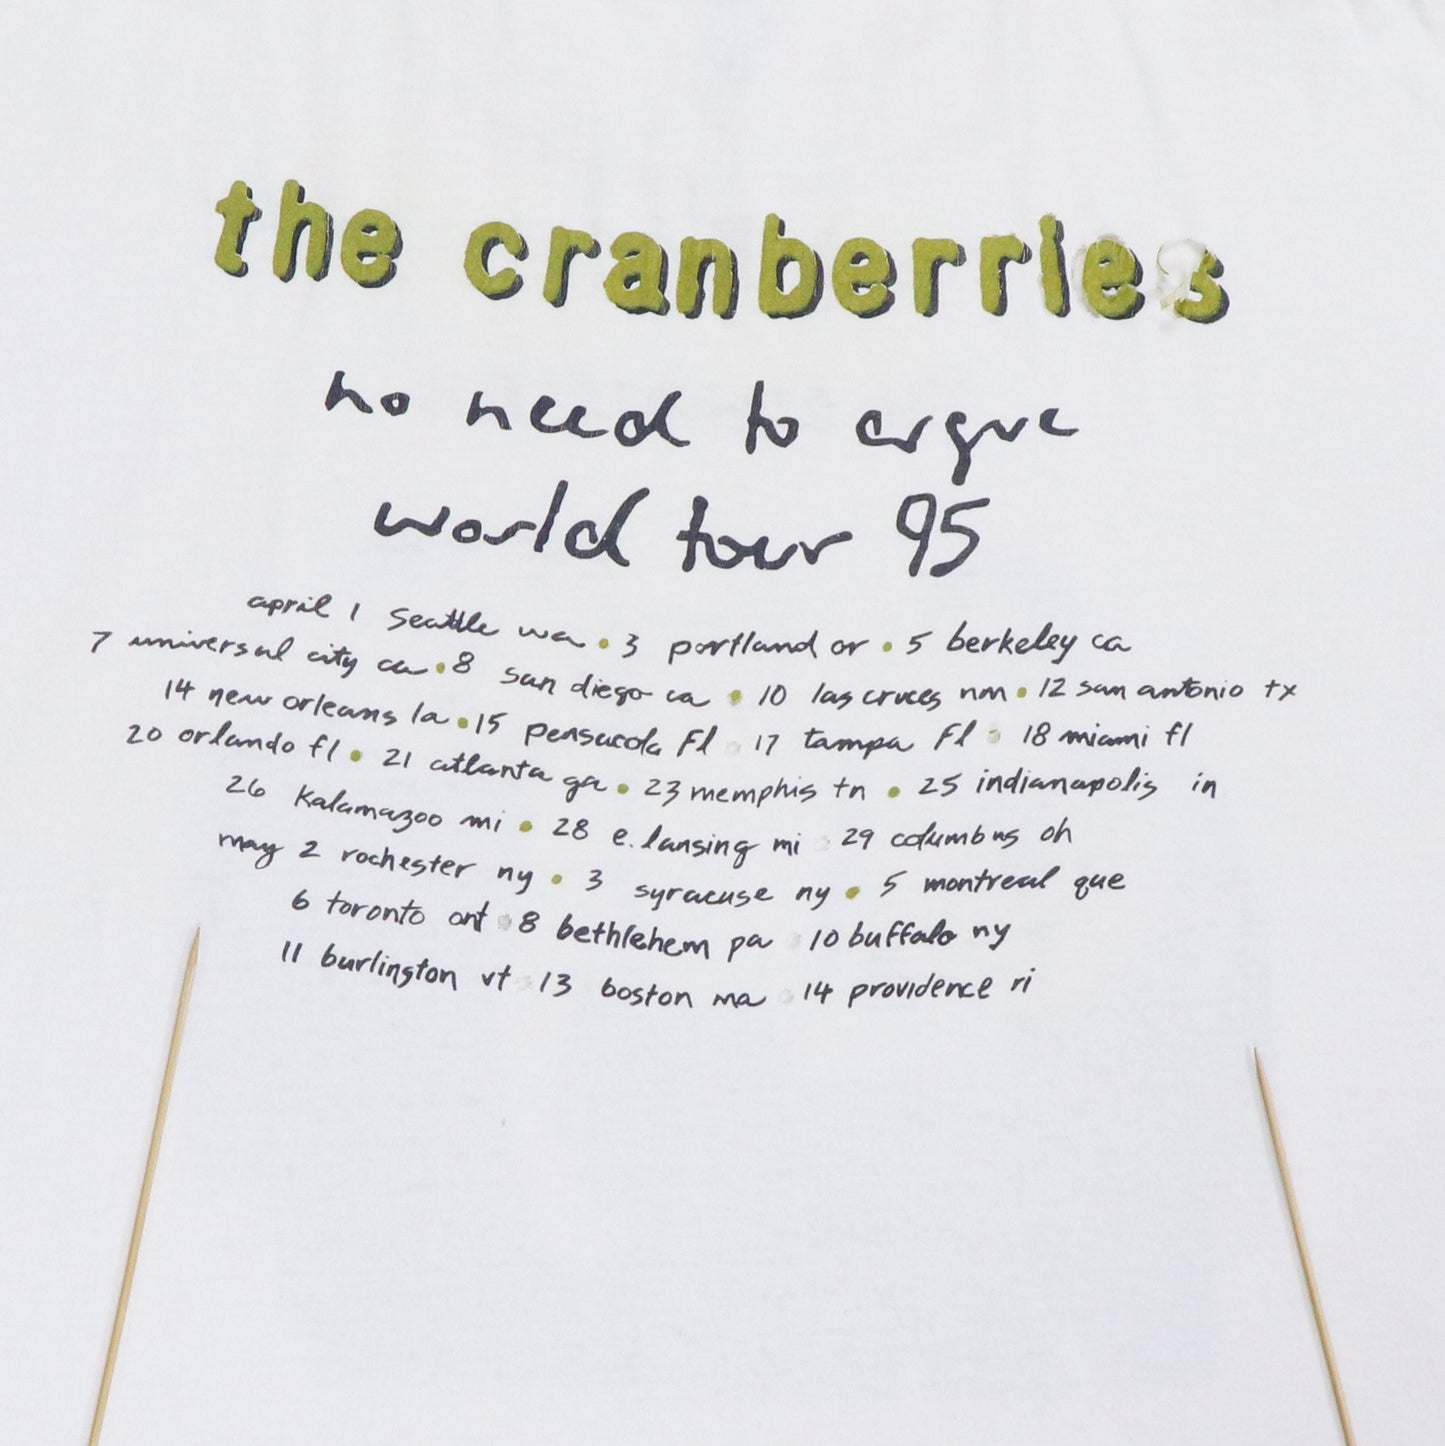 the cranberries
no need to argue
world tour 95
april 1 seattle wa • 3 portland or • 5 berkeley ca
7 universal city ca • 8 san diego ca • 10 las cruces nm • 12 san antonio tx
14 new orleans la • 15 pensacola fl • 17 tampa fl • 18 miami fl
20 orlando fl • 21 atlanta ga • 23 memphis tn • 25 indianapolis in
26 kalamazoo mi • 28 e. lansing mi • 29 columbus oh
may 2 rochester ny • 3 syracuse ny • 5 montreal que
6 toronto ont • 8 bethlehem pa • 10 buffalo ny
11 burlington vt • 13 boston ma • 14 providence ri